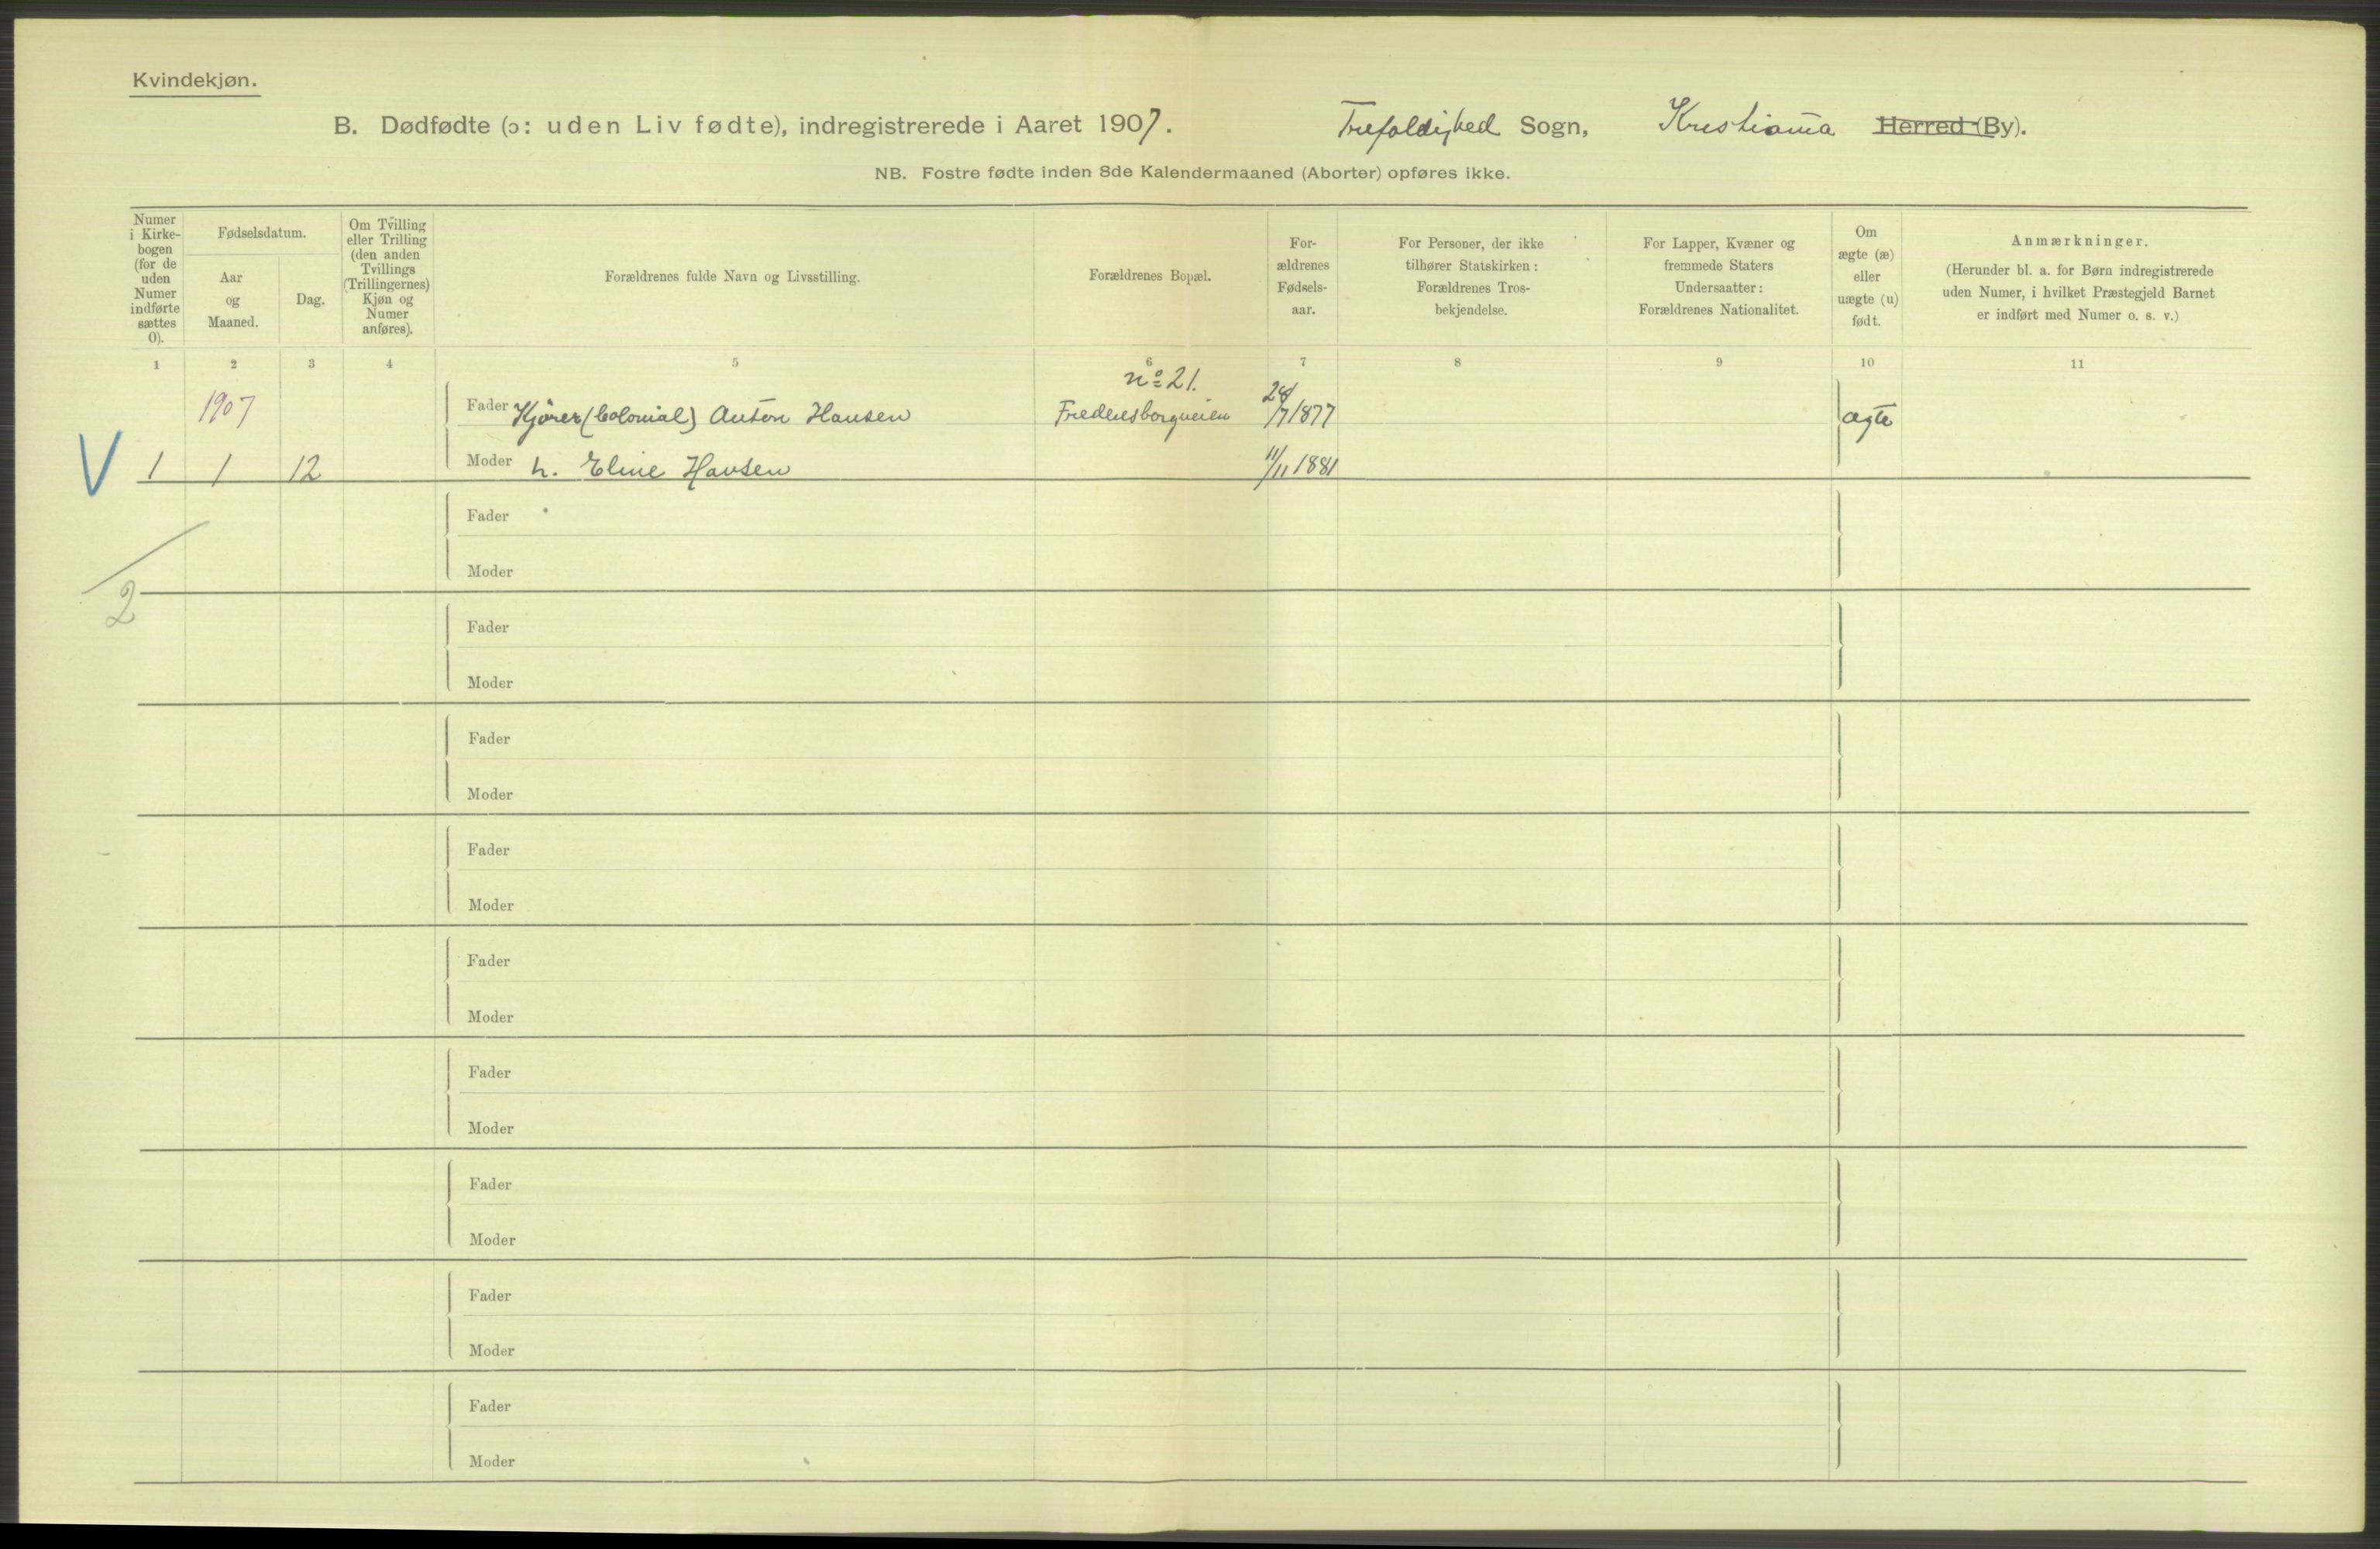 Kvindekjøn.
B. Dødfødte (ɔ: uden Liv fødte), indregistrerede i Aaret 1907. Trefoldighed Sogn, Kristiania Herred (By).
NB. Fostre fødte inden 8de Kalendermaaned (Aborter) opføres ikke.
Numer
i Kirke-
bogen
(for de
uden
Numer
indførte
sættes
0).
Fødselsdatum.
Aar
og
Maaned.
Dag.
Om Tvilling
eller Trilling
(den anden
Tvillings
(Trillingernes)
Kjøn og
Numer
anføres).
Forældrenes fulde Navn og Livsstilling.
Forældrenes Bopæl.
For-
ældrenes
Fødsels-
aar.
For Personer, der ikke
tilhører Statskirken:
Forældrenes Tros-
bekjendelse.
For Lapper, Kvæner og
fremmede Staters
Undersaatter:
Forældrenes Nationalitet.
Om
ægte (æ)
eller
uægte (u)
født.
Anmærkninger.
(Herunder bl. a. for Børn indregistrerede
uden Numer, i hvilket Præstegjeld Barnet
er indført med Numer o. s. v.)
1 2 3 4 5 6 7 8 9 10 11
No 21.
1907 Fader Kjører (Colonial) Anton Hansen Fredensborgveien /7 1877 ægte
V 1 1 12 Moder h. Eline Hansen 11/11 1881
Fader
Moder
2
Fader
Moder
Fader
Moder
Fader
Moder
Fader
Moder
Fader
Moder
Fader
Moder
Fader
Moder
Fader
Moder